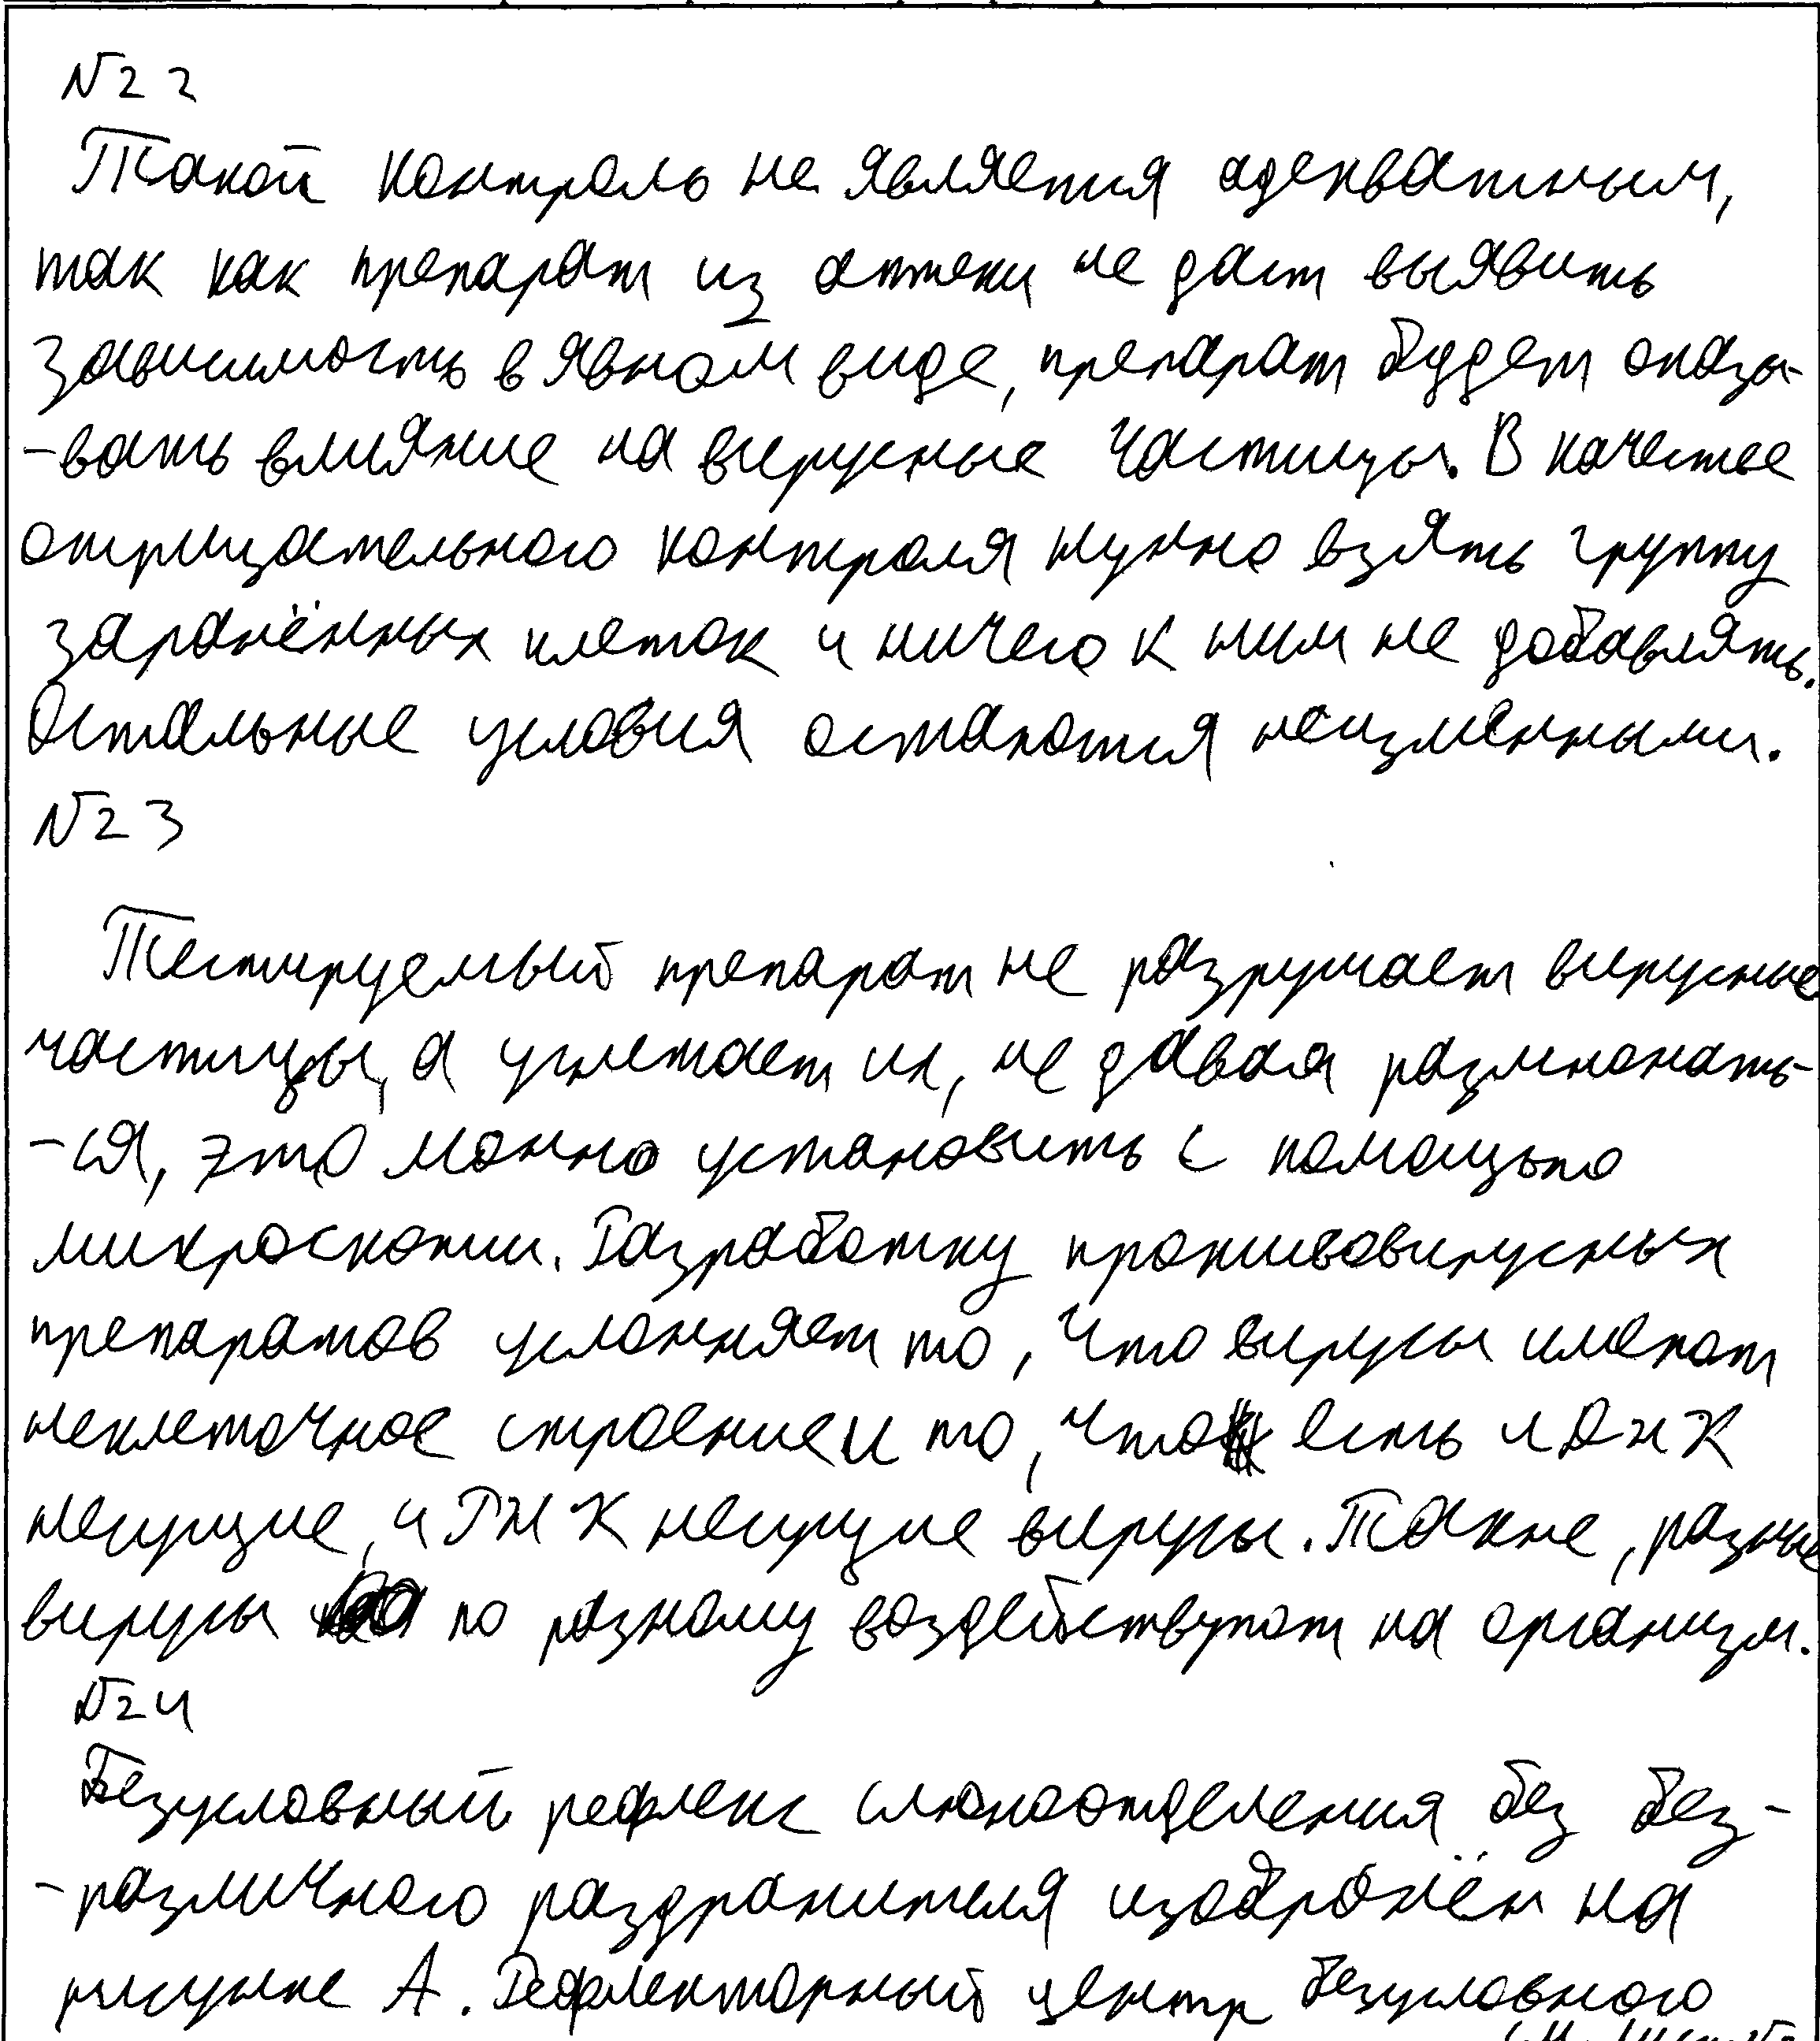 №22
Такой контроль не является адекватным,
так как препарат из аптеки не даст выявить
зависимость в явном виде, препарат будет оказы-
-вать влияние на вирусные частицы. В качестве
отрицательного контроля нужно взять группу
заражённых клеток и ничего к ним не добавлять.
Остальные условия остаются неизменными.
№23
Тестируемый препарат не разрушает вирусные
частицы, а угнетает их, не давая размножать-
-ся, это можно установить с помощью
микроскопии. Разработку противовирусных
препаратов усложняет то, что вирусы имеют
неклеточное строение и то, что есть и ДНК
несущие, и РНК несущие вирусы. Также, разные
вирусы по разному воздействуют на организм.
№24
Безусловный рефлекс слюноотделения без без-
-различного раздражителя изображён на
рисунке А. Рефлекторный центр безусловного